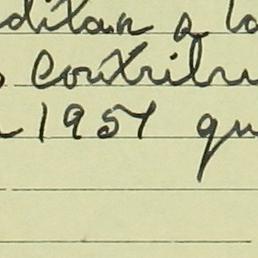 ditan a la
contribu
1957 qu